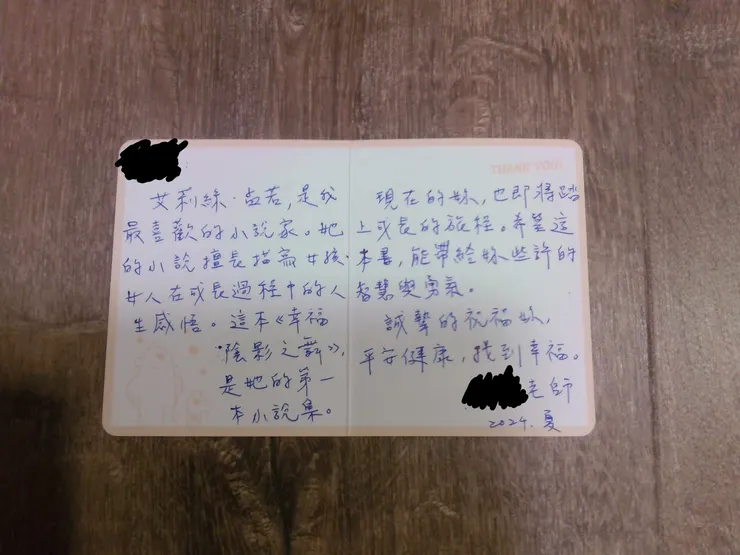 :
艾莉絲·孟若,是我
最喜歡的小說家。她
的小說擅長描寫女孩、
女人在成長過程中的人
生感悟。這本《幸福
陰影之舞》,
是她的第一
本小說集。
THANK YOU!
現在的妳,也即將踏
上成長的旅程。希望這
本書,能帶給妳些許的
智慧與勇氣。
誠摯的祝福妳,
平安健康,找到幸福。
老師
2024.夏